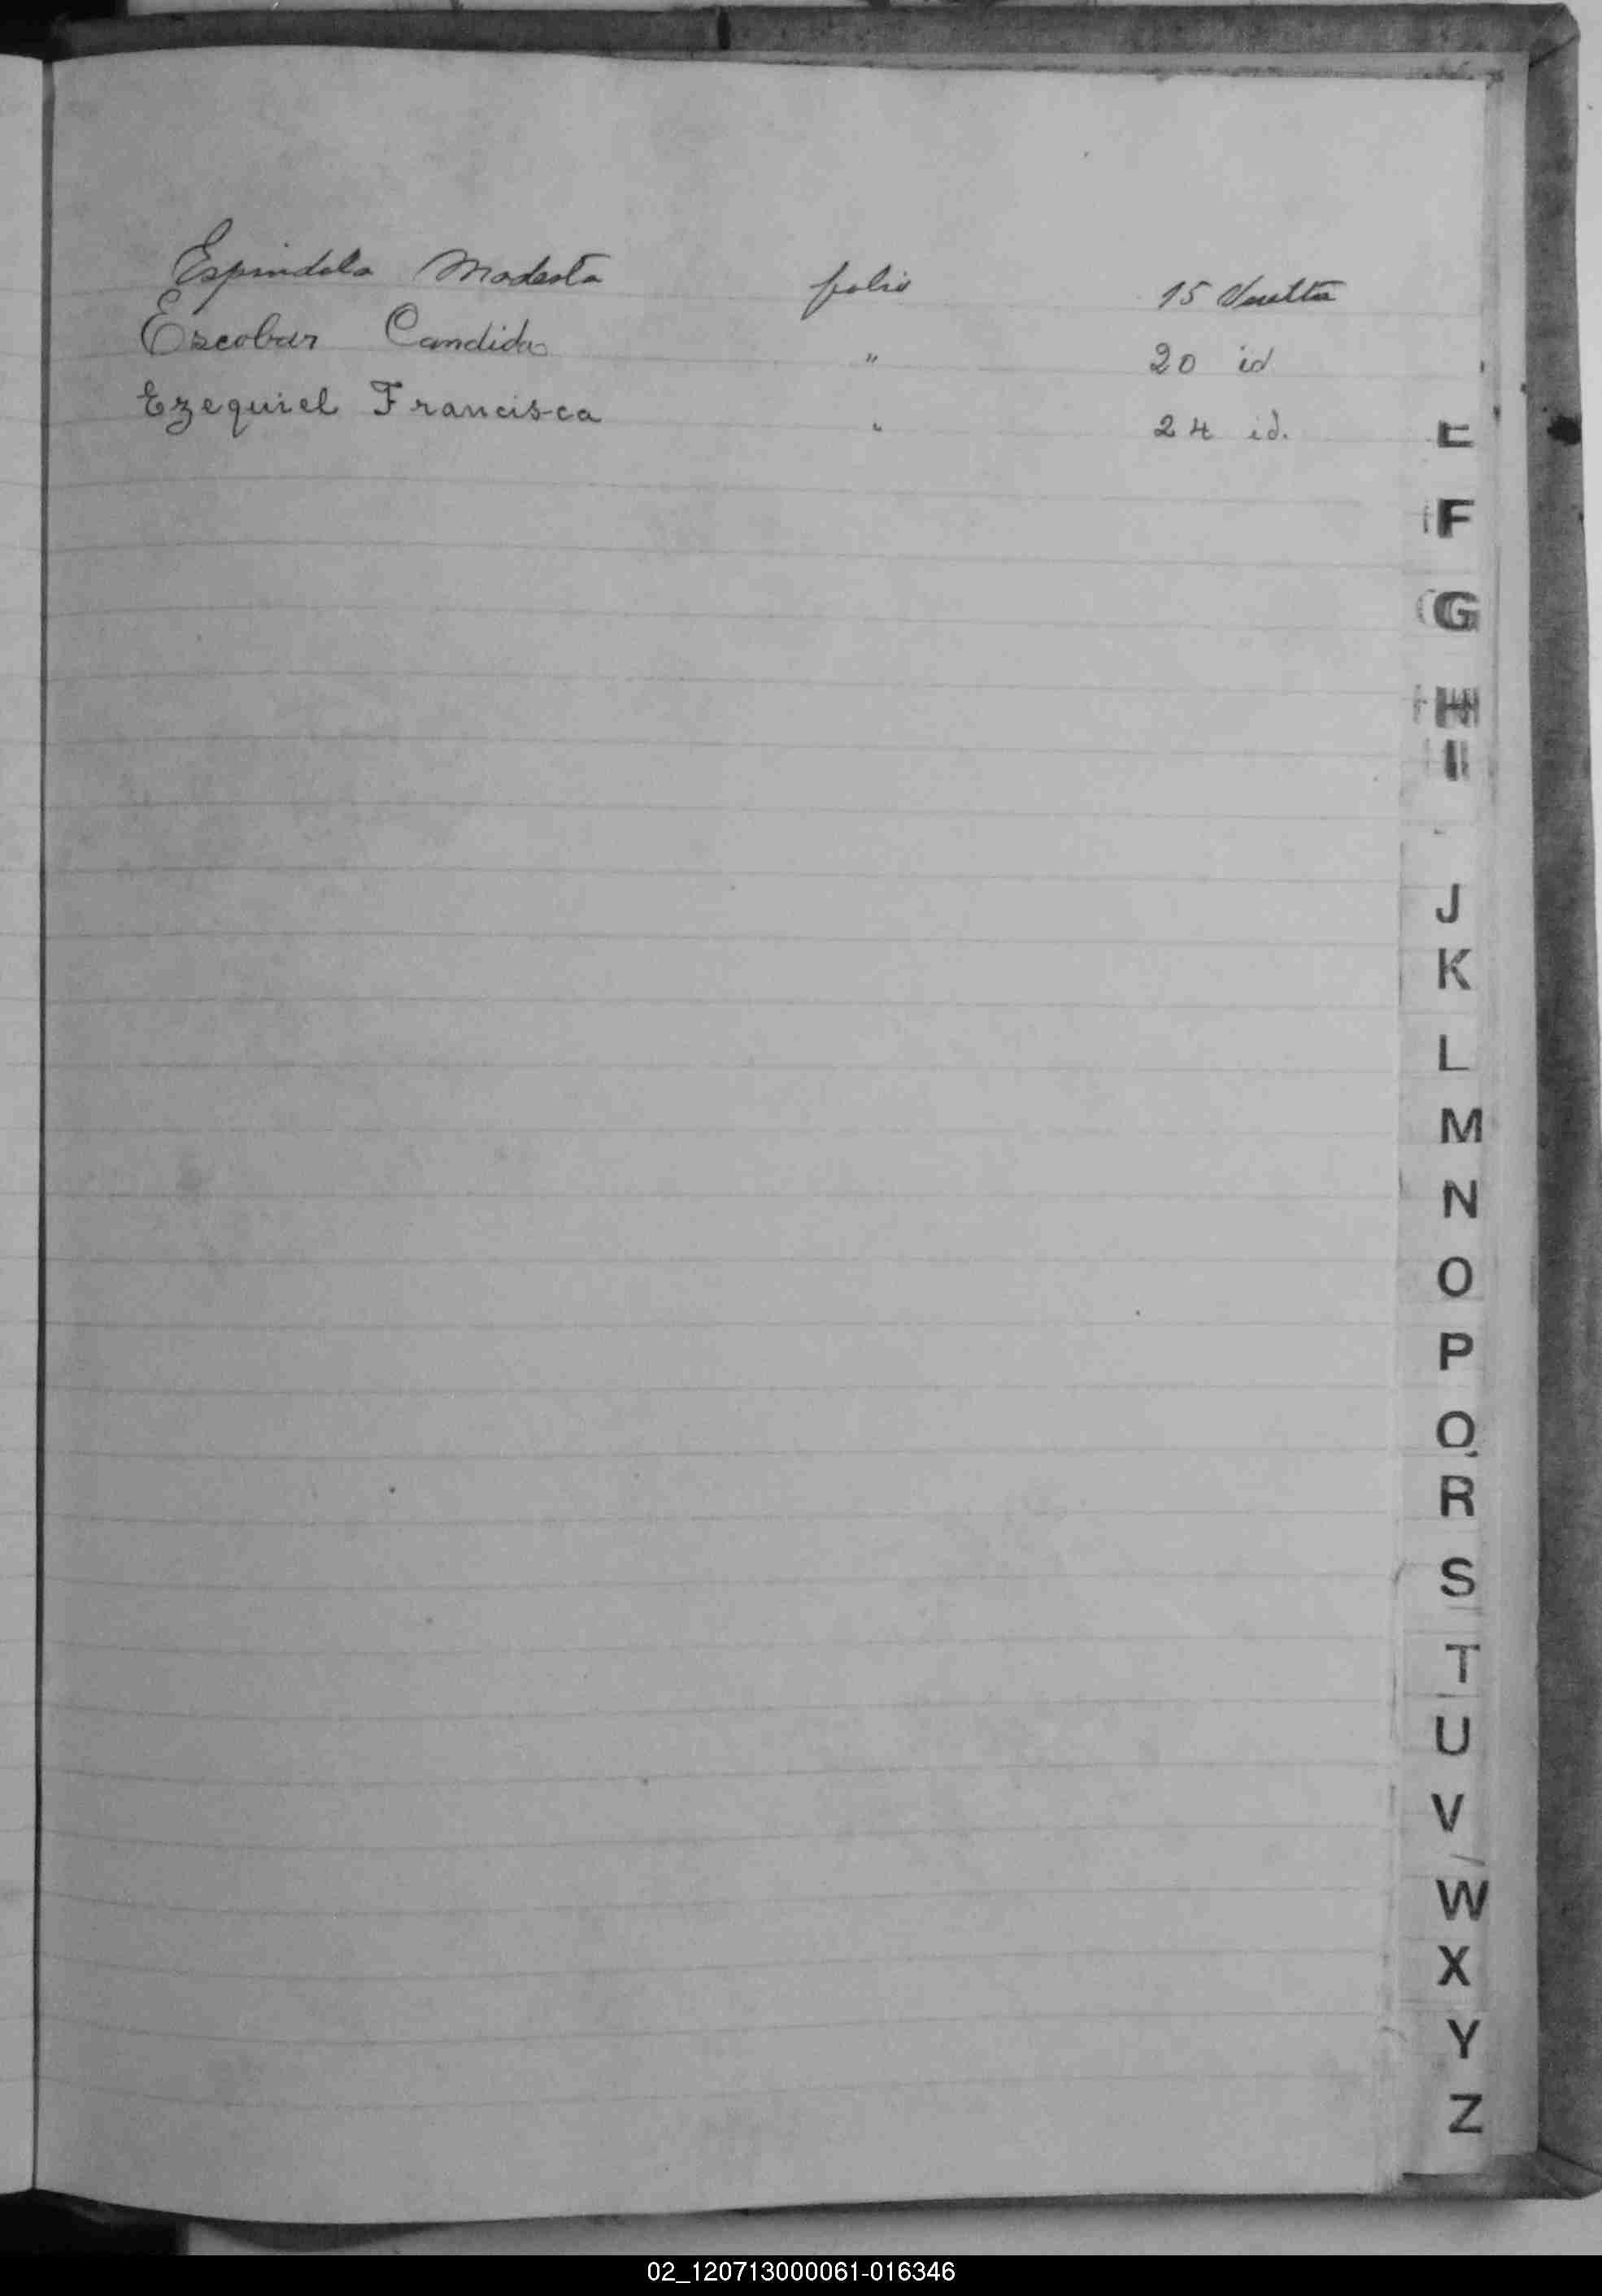 Espindola Modesta folio 15 Vuelta
Escobar Candida " 20 id
Ezequiel Francisca " 24 id.
E
F
G
H
I
J
K
L
M
N
O
P
Q
R
S
T
U
V
W
X
Y
Z
02_120713000061-016346